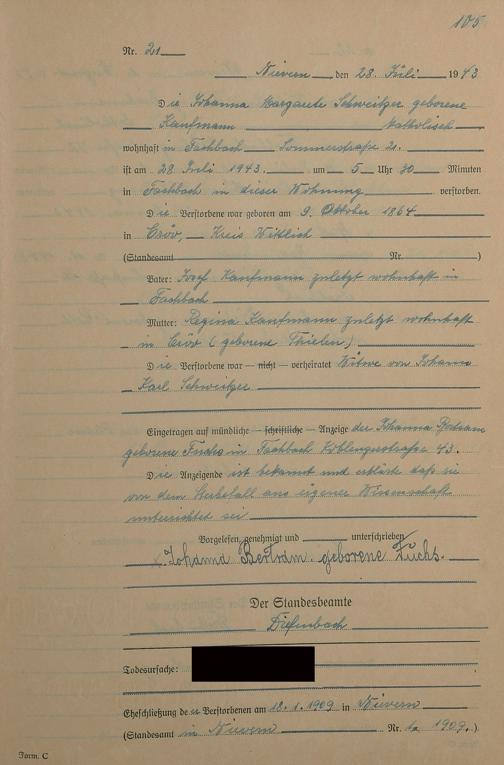 105
Nr. 21
Nievern den 28. Juli 1943
Die Johanna Margarete Schweitzer geborene
Kaufmann katholisch
wohnhaft in Fachbach Sommerstraße 21.
ist am 28 Juli 1943. um 5 Uhr 30 Minuten
in Fachbach in dieser Wohnung verstorben.
Die Verstorbene war geboren am 9. Oktober 1864
in Cröv, Kreis Wittlich
(Standesamt Nr. )
Vater: Josef Kaufmann zuletzt wohnhaft in
Fachbach
Mutter: Regina Kaufmann zuletzt wohnhaft
in Cröv (geborene Thielen)
Die Verstorbene war — nicht — verheiratet Witwe von Johann
Karl Schweitzer
Eingetragen auf mündliche — schriftliche — Anzeige der Johanna Bertram
geborene Fuchs in Fachbach Koblenzerstraße 43.
Die Anzeigende ist bekannt und erklärte daß sie
von dem Sterbefall aus eigener Wissenschaft
unterrichtet sei
Vorgelesen, genehmigt und unterschrieben
Johanna Bertram geborene Fuchs.
Der Standesbeamte
Diefenbach
Todesursache:
Eheschließung der Verstorbenen am 18.1.1909 in Nievern
(Standesamt in Nievern Nr. 1a 1909.)
Form. C